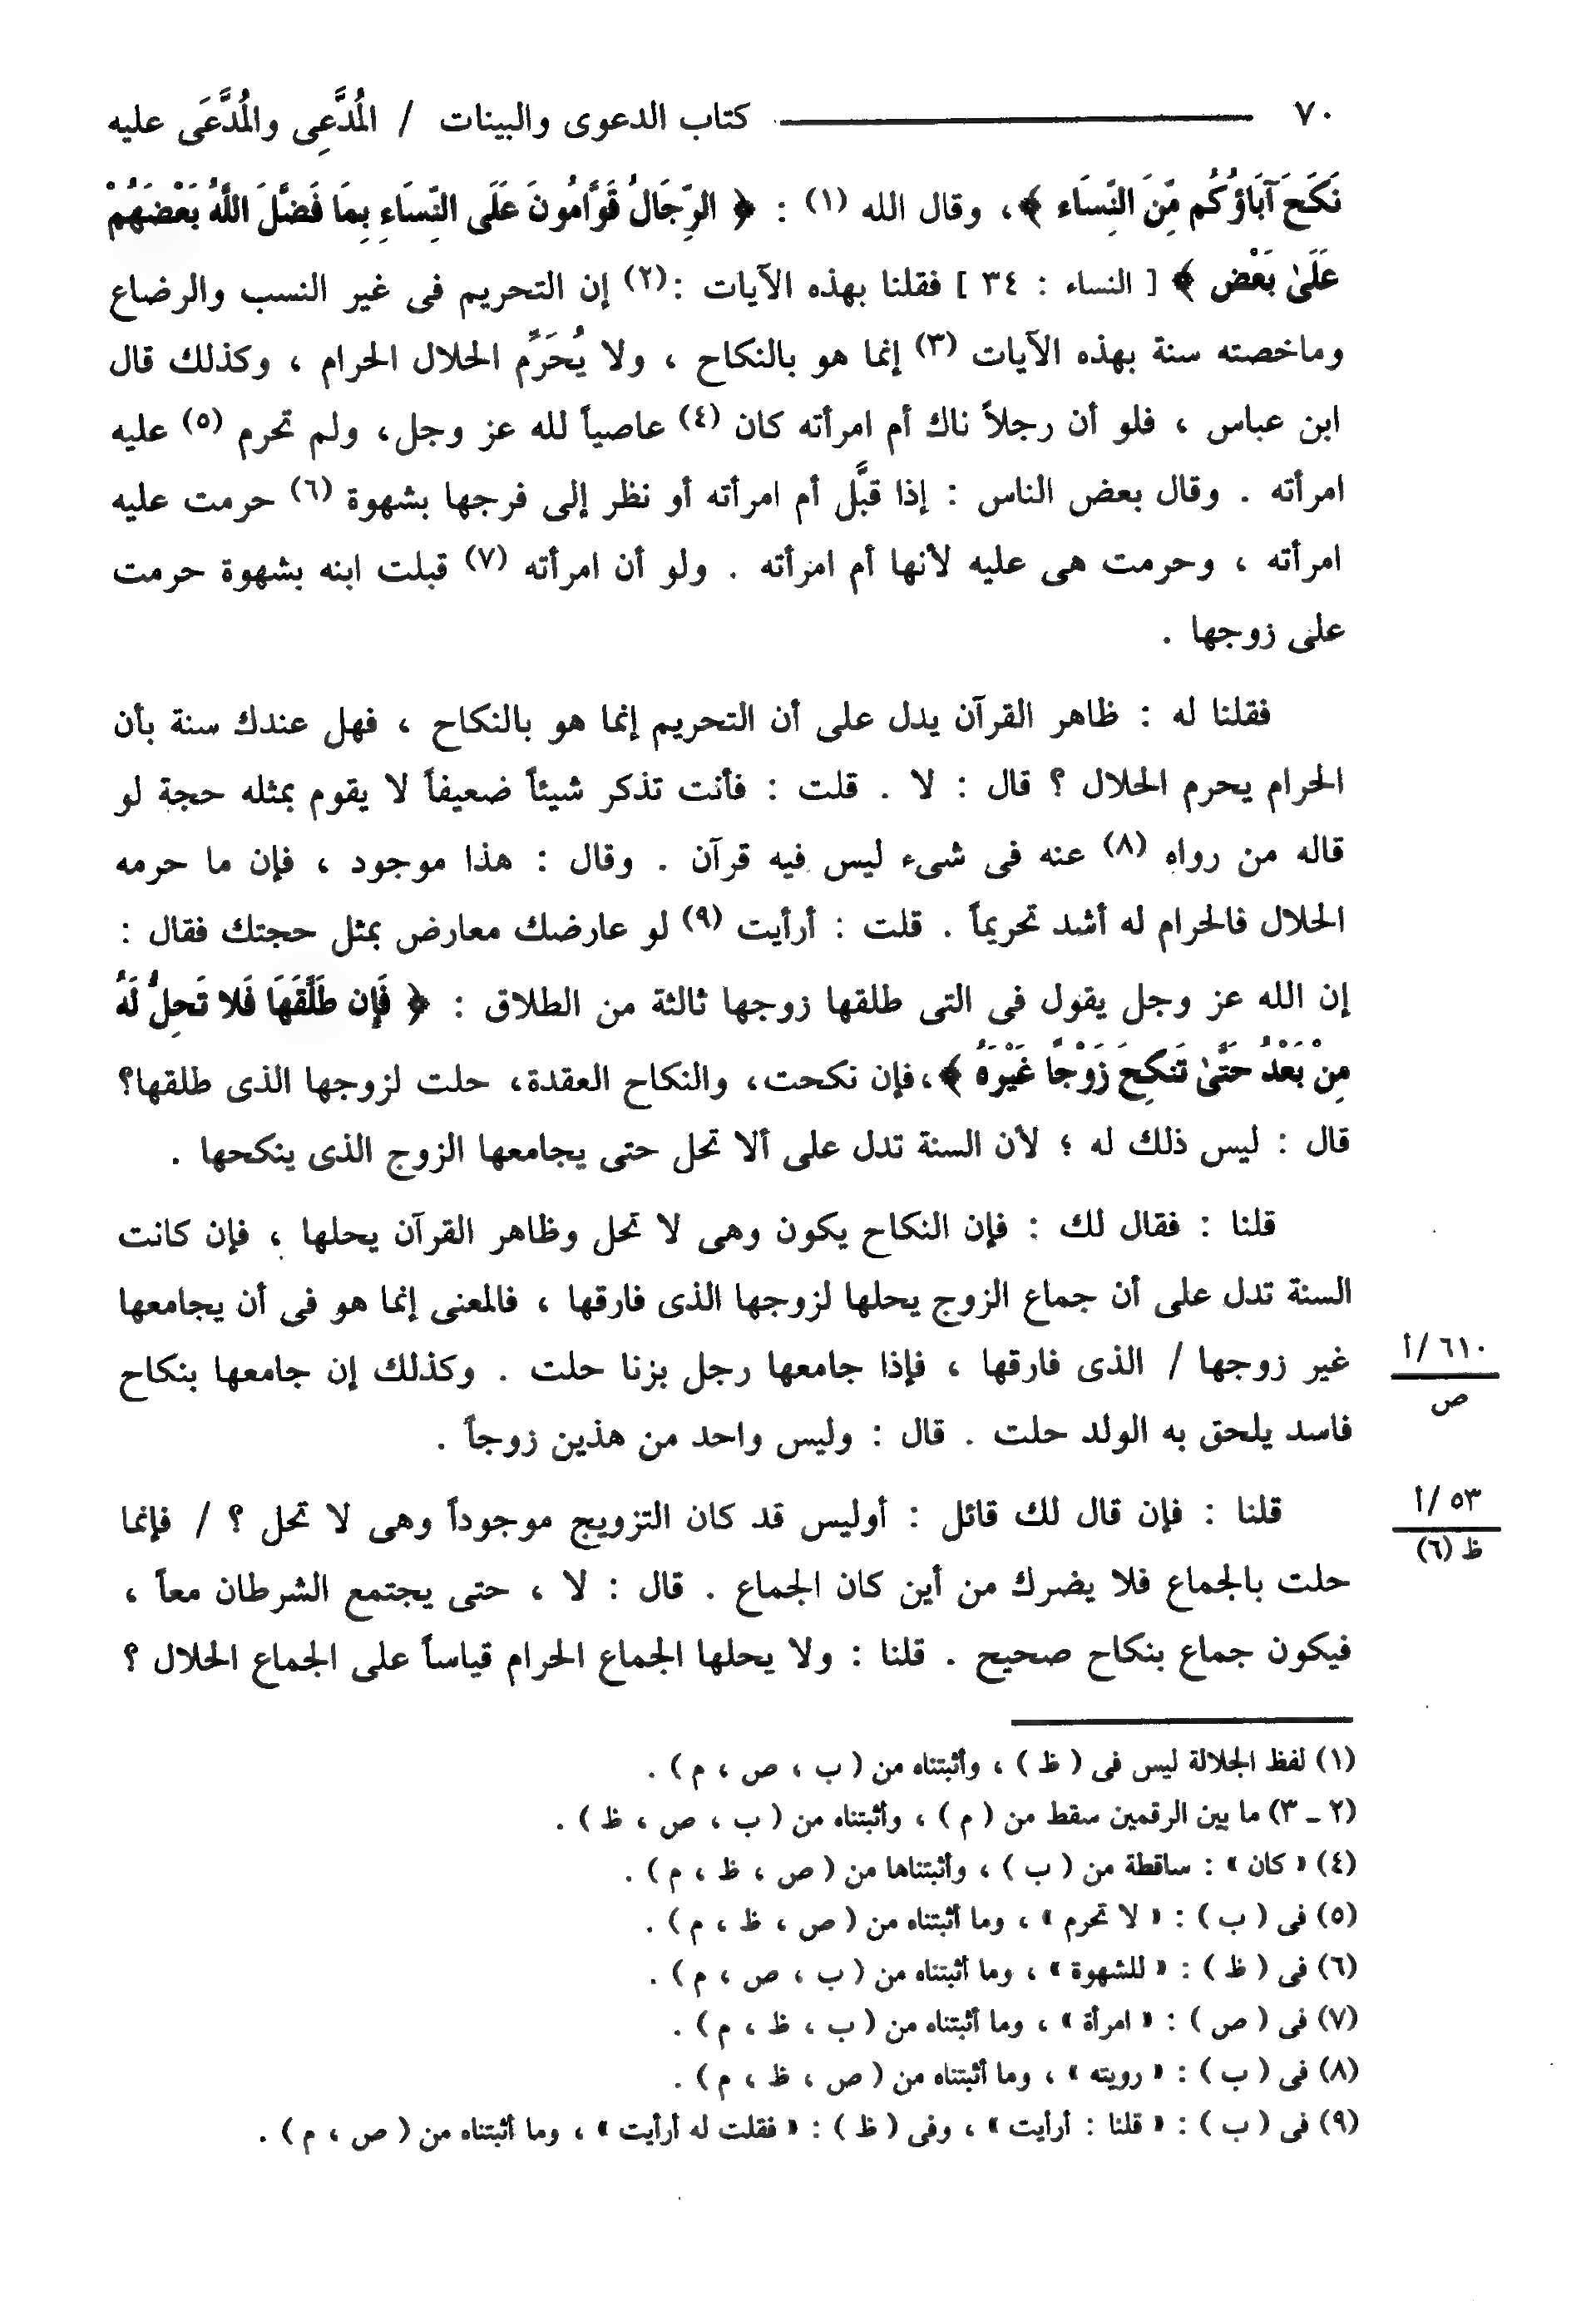 ٧٠ كتاب الدعوى والبينات / المُدَّعِى والمُدَّعَى عليه
نَكَحَ آبَاؤُكُم مِّنَ النِّسَاء ﴾، وقال الله (١) : ﴿ الرِّجَالُ قَوَّامُونَ عَلَى النِّسَاءِ بِمَا فَضَّلَ اللَّهُ بَعْضَهُمْ
عَلَىٰ بَعْض ﴾ [ النساء : ٣٤ ] فقلنا بهذه الآيات :(٢) إن التحريم فى غير النسب والرضاع
وماخصته سنة بهذه الآيات (٣) إنما هو بالنكاح ، ولا يُحَرِّم الحلال الحرام ، وكذلك قال
ابن عباس ، فلو أن رجلاً ناك أم امرأته كان (٤) عاصياً لله عز وجل، ولم تحرم (٥) عليه
امرأته . وقال بعض الناس : إذا قبَّل أم امرأته أو نظر إلى فرجها بشهوة (٦) حرمت عليه
امرأته ، وحرمت هى عليه لأنها أم امرأته . ولو أن امرأته (٧) قبلت ابنه بشهوة حرمت
على زوجها .
فقلنا له : ظاهر القرآن يدل على أن التحريم إنما هو بالنكاح ، فهل عندك سنة بأن
الحرام يحرم الحلال ؟ قال : لا . قلت : فأنت تذكر شيئاً ضعيفاً لا يقوم بمثله حجة لو
قاله من رواه (٨) عنه فى شىء ليس فيه قرآن . وقال : هذا موجود ، فإن ما حرمه
الحلال فالحرام له أشد تحريماً . قلت : أرأيت (٩) لو عارضك معارض بمثل حجتك فقال :
إن الله عز وجل يقول فى التى طلقها زوجها ثالثة من الطلاق : ﴿ فَإِن طَلَّقَهَا فَلا تَحِلُّ لَهُ
مِنْ بَعْدُ حَتَّىٰ تَنكِحَ زَوْجًا غَيْرَهُ ﴾،فإن نكحت، والنكاح العقدة، حلت لزوجها الذى طلقها؟
قال : ليس ذلك له ؛ لأن السنة تدل على ألا تحل حتى يجامعها الزوج الذى ينكحها .
قلنا : فقال لك : فإن النكاح يكون وهى لا تحل وظاهر القرآن يحلها ، فإن كانت
السنة تدل على أن جماع الزوج يحلها لزوجها الذى فارقها ، فالمعنى إنما هو فى أن يجامعها
غير زوجها / الذى فارقها ، فإذا جامعها رجل بزنا حلت . وكذلك إن جامعها بنكاح
٦١٠ /أ
ص
فاسد يلحق به الولد حلت . قال : وليس واحد من هذين زوجاً .
قلنا : فإن قال لك قائل : أوليس قد كان التزويج موجوداً وهى لا تحل ؟ / فإنما
٥٣ /أ
ظ (٦)
حلت بالجماع فلا يضرك من أين كان الجماع . قال : لا ، حتى يجتمع الشرطان معاً ،
فيكون جماع بنكاح صحيح . قلنا : ولا يحلها الجماع الحرام قياساً على الجماع الحلال ؟
(١) لفظ الجلالة ليس فى ( ظ ) ، وأثبتناه من ( ب ، ص ، م ) .
(٢ ـ ٣) ما بين الرقمين سقط من ( م ) ، وأثبتناه من ( ب ، ص ، ظ ) .
(٤) « كان » : ساقطة من ( ب ) ، وأثبتناها من ( ص ، ظ ، م ) .
(٥) فى ( ب ) : « لا تحرم » ، وما أثبتناه من ( ص ، ظ ، م ) .
(٦) فى ( ظ ) : « للشهوة » ، وما أثبتناه من ( ب ، ص ، م ) .
(٧) فى ( ص ) : « امرأة » ، وما أثبتناه من ( ب ، ظ ، م ) .
(٨) فى ( ب ) : « رويته » ، وما أثبتناه من ( ص ، ظ ، م ) .
(٩) فى ( ب ) : « قلنا : أرأيت » ، وفى ( ظ ) : « فقلت له أرأيت » ، وما أثبتناه من ( ص ، م ) .